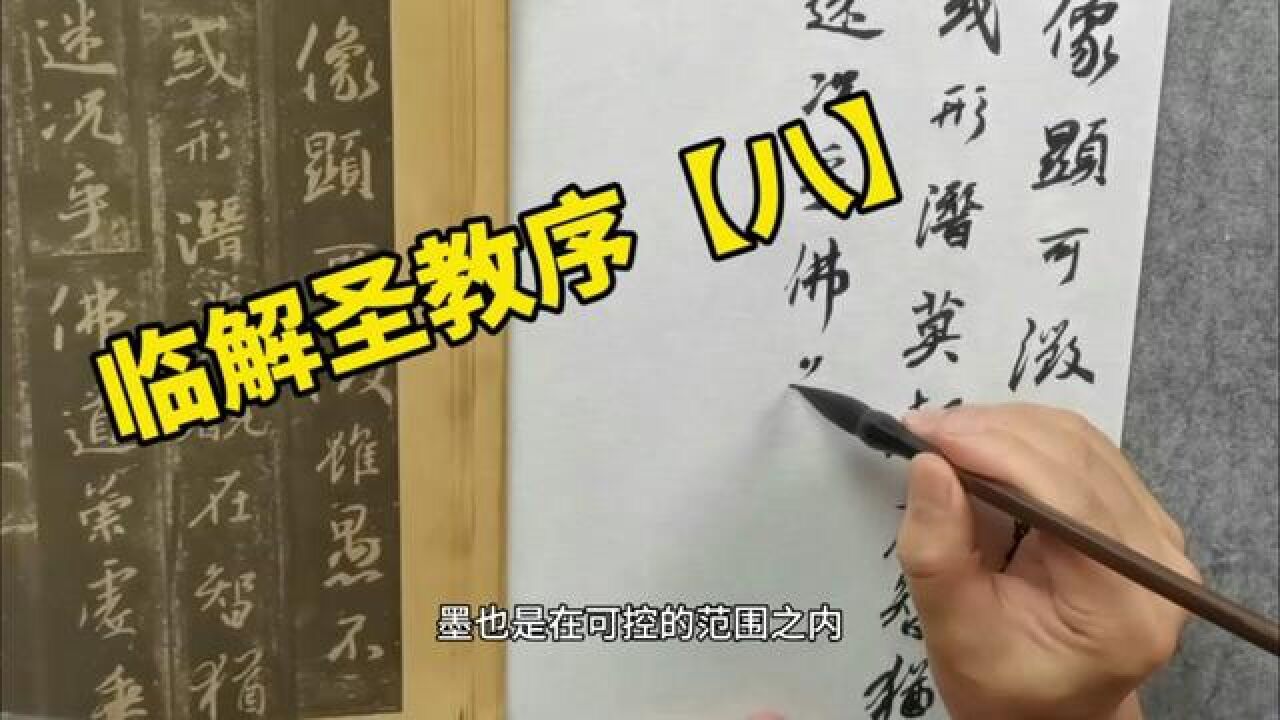 临解圣教序【八】
像顯可徵
或形潛莫智猶
迷況乎佛
像顯雖愚不
或形潛在智猶
迷況乎佛道崇虛乘
墨也是在可控的范围之内